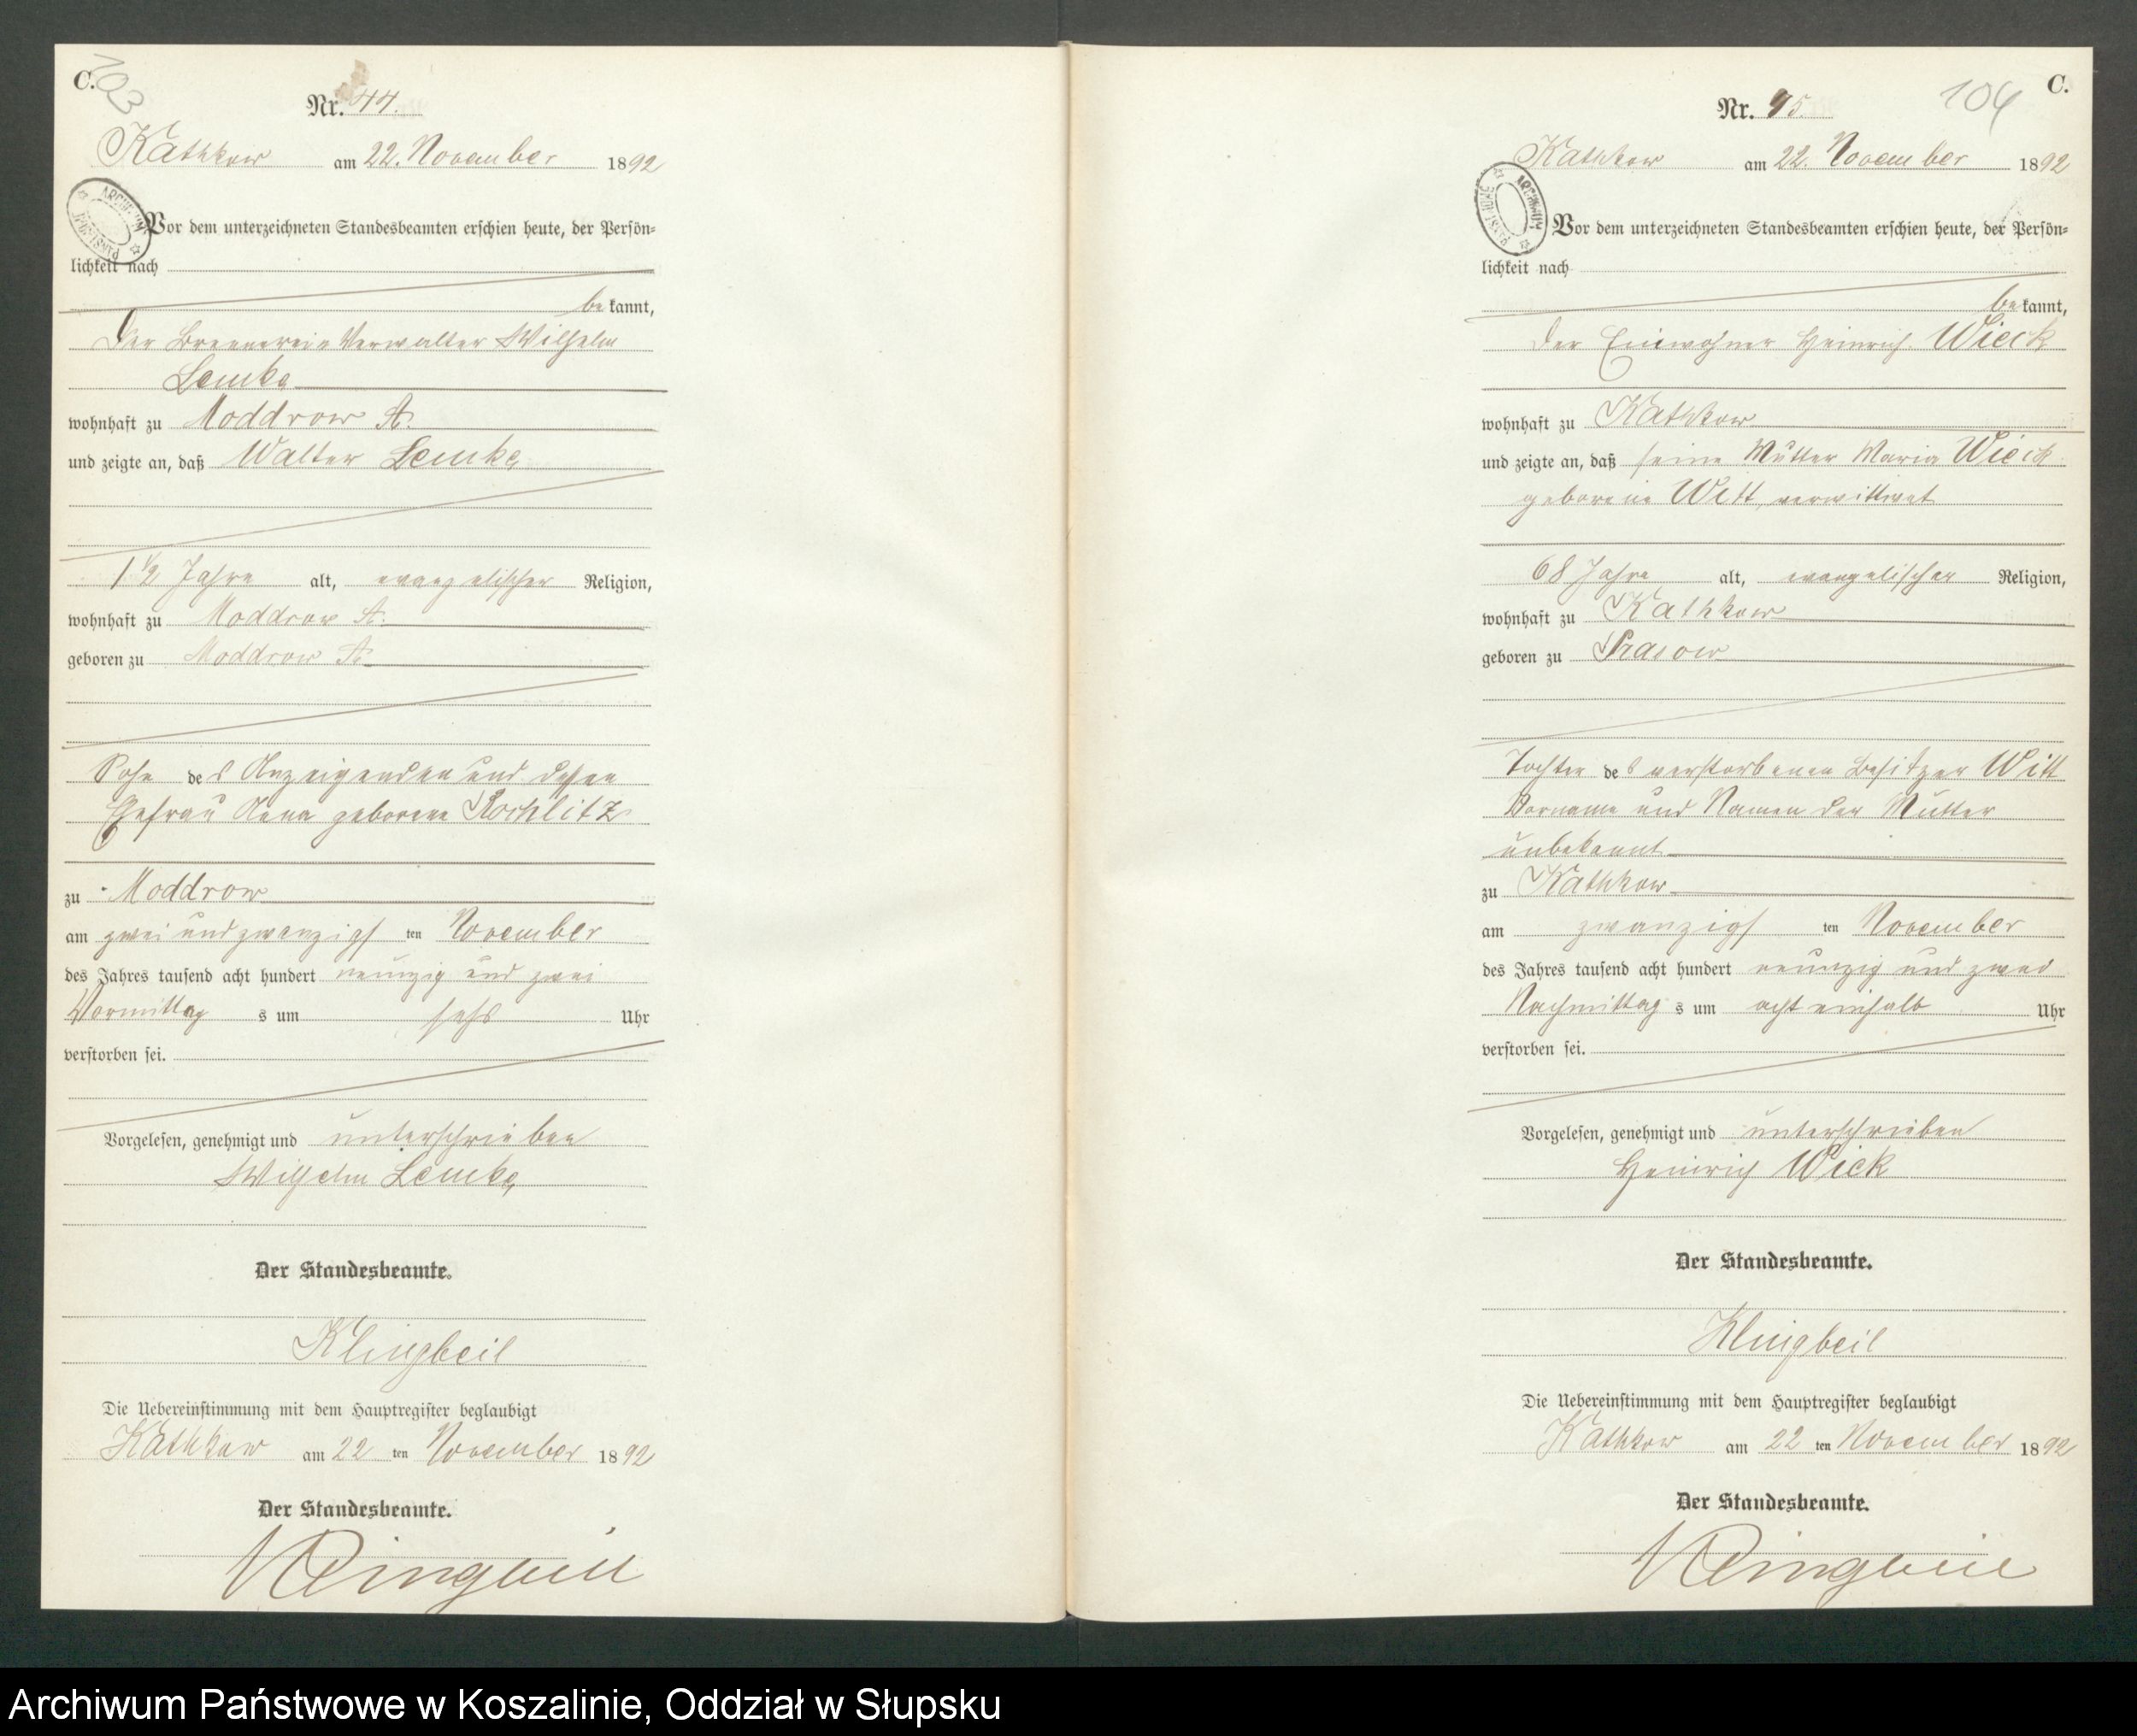 C.
103
Nr. 44.
Kathkow am 22. November 1892
Vor dem unterzeichneten Standesbeamten erschien heute, der Persön-
lichkeit nach
be kannt,
der Brennerei Verwalter Wilhelm
Lemke
wohnhaft zu Moddrow A.
und zeigte an, daß Walter Lemke
1 1/2 Jahre alt, evangelischer Religion,
wohnhaft zu Moddrow A.
geboren zu Moddrow A.
Sohn des Anzeigenden und dessen
Ehefrau Anna geborene Rochlitz
zu Moddrow
am zwei und zwanzigs ten November
des Jahres tausend acht hundert neunzig und zwei
Vormittag s um sechs Uhr
verstorben sei.
Vorgelesen, genehmigt und unterschrieben
Wilhelm Lemke
Der Standesbeamte.
Klingbeil
Die Uebereinstimmung mit dem Hauptregister beglaubigt
Kathkow am 22 ten November 1892
Der Standesbeamte.
Klingbeil
C.
104
Nr. 45.
Kathkow am 22. November 1892
ARCHIWUM PAŃSTWOWE
Vor dem unterzeichneten Standesbeamten erschien heute, der Persön-
lichkeit nach
be kannt,
der Einwohner Heinrich Wieck
wohnhaft zu Kathkow
und zeigte an, daß seine Mutter Maria Wieck
geborene Witt, verwittwet
68 Jahre alt, evangelischer Religion,
wohnhaft zu Kathkow
geboren zu
Tochter des verstorbenen Besitzer Witt
Vorname und Namen der Mutter
unbekannt
zu Kathkow
am zwanzigs ten November
des Jahres tausend acht hundert neunzig und zwei
Nachmittag s um acht einhalb Uhr
verstorben sei.
Vorgelesen, genehmigt und unterschrieben
Heinrich Wick
Der Standesbeamte.
Klingbeil
Die Uebereinstimmung mit dem Hauptregister beglaubigt
Kathkow am 22 ten November 1892
Der Standesbeamte.
Klingbeil
Archiwum Państwowe w Koszalinie, Oddział w Słupsku